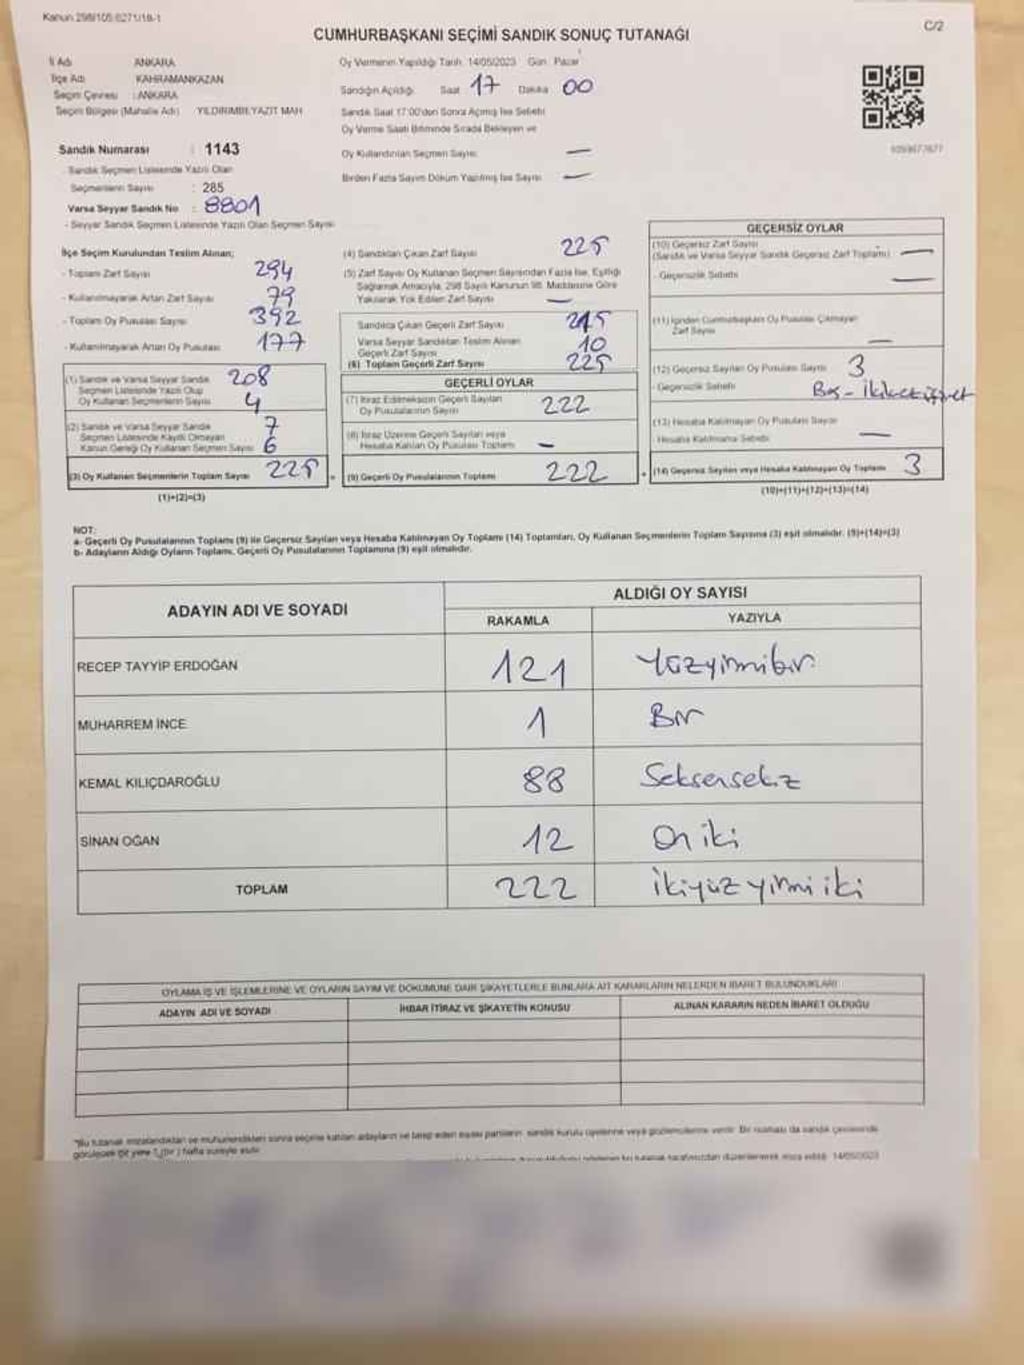 Kanun 298/105 6271/18-1
C/2
CUMHURBAŞKANI SEÇİMİ SANDIK SONUÇ TUTANAĞI
İl Adı ANKARA
İlçe Adı KAHRAMANKAZAN
Seçim Çevresi : ANKARA
Seçim Bölgesi (Mahalle Adı) YILDIRIMBEYAZIT MAH
Sandık Numarası : 1143
- Sandık Seçmen Listesinde Yazılı Olan
Seçmenlerin Sayısı : 285
Varsa Seyyar Sandık No : 8801
- Seyyar Sandık Seçmen Listesinde Yazılı Olan Seçmen Sayısı
Oy Vermenin Yapıldığı Tarih: 14/05/2023 Gün: Pazar
Sandığın Açıldığı Saat 17 Dakika 00
Sandık Saat 17:00'den Sonra Açılmış İse Sebebi
Oy Verme Saati Bitiminde Sırada Bekleyen ve
Oy Kullandırılan Seçmen Sayısı: —
Birden Fazla Sayım Döküm Yapılmış İse Sayısı —
İlçe Seçim Kurulundan Teslim Alınan;
- Toplam Zarf Sayısı 294
- Kullanılmayarak Artan Zarf Sayısı 79
- Toplam Oy Pusulası Sayısı 392
- Kullanılmayarak Artan Oy Pusulası 177
(1) Sandık ve Varsa Seyyar Sandık 208
Seçmen Listesinde Yazılı Olup
Oy Kullanan Seçmenlerin Sayısı 4
(2) Sandık ve Varsa Seyyar Sandık 7
Seçmen Listesinde Kayıtlı Olmayan
Kanun Gereği Oy Kullanan Seçmen Sayısı 6
(3) Oy Kullanan Seçmenlerin Toplam Sayısı 225
(1)+(2)=(3)
(4) Sandıktan Çıkan Zarf Sayısı 225
(5) Zarf Sayısı Oy Kullanan Seçmen Sayısından Fazla İse, Eşitliği
Sağlamak Amacıyla, 298 Sayılı Kanunun 98. Maddesine Göre
Yakılarak Yok Edilen Zarf Sayısı —
Sandıkta Çıkan Geçerli Zarf Sayısı 215
Varsa Seyyar Sandıktan Teslim Alınan
Geçerli Zarf Sayısı 10
(6) Toplam Geçerli Zarf Sayısı 225
GEÇERLİ OYLAR
(7) İtiraz Edilmeksizin Geçerli Sayılan
Oy Pusulalarının Sayısı 222
(8) İtiraz Üzerine Geçerli Sayılan veya
Hesaba Katılan Oy Pusulaları Toplamı —
(9) Geçerli Oy Pusulalarının Toplamı 222
GEÇERSİZ OYLAR
(10) Geçersiz Zarf Sayısı
(Sandık ve Varsa Seyyar Sandık Geçersiz Zarf Toplamı) —
- Geçersizlik Sebebi —
(11) İçinden Cumhurbaşkanı Oy Pusulası Çıkmayan
Zarf Sayısı —
(12) Geçersiz Sayılan Oy Pusulası Sayısı 3
- Geçersizlik Sebebi Boş -
(13) Hesaba Katılmayan Oy Pusulası Sayısı
Hesaba Katılmama Sebebi —
(14) Geçersiz Sayılan veya Hesaba Katılmayan Oy Toplamı 3
(10)+(11)+(12)+(13)=(14)
NOT:
a- Geçerli Oy Pusulalarının Toplamı (9) ile Geçersiz Sayılan veya Hesaba Katılmayan Oy Toplamı (14) Toplamları, Oy Kullanan Seçmenlerin Toplam Sayısına (3) eşit olmalıdır. (9)+(14)=(3)
b- Adayların Aldığı Oyların Toplamı, Geçerli Oy Pusulalarının Toplamına (9) eşit olmalıdır.
ADAYIN ADI VE SOYADI
ALDIĞI OY SAYISI
RAKAMLA YAZIYLA
RECEP TAYYİP ERDOĞAN 121 Yüzyirmibir
MUHARREM İNCE 1 Bir
KEMAL KILIÇDAROĞLU 88 Seksensekiz
SİNAN OĞAN 12 On iki
TOPLAM 222 İkiyüz yirmi iki
OYLAMA İŞ VE İŞLEMLERİNE VE OYLARIN SAYIM VE DÖKÜMÜNE DAİR ŞİKAYETLERLE BUNLARA AİT KARARLARIN NELERDEN İBARET BULUNDUKLARI
ADAYIN ADI VE SOYADI İHBAR İTİRAZ VE ŞİKAYETİN KONUSU ALINAN KARARIN NEDEN İBARET OLDUĞU
*Bu tutanak imzalandıktan ve mühürlendikten sonra seçime katılan adayların ve talep eden siyasi partilerin sandık kurulu üyelerine veya gözlemcilerine verilir. Bir nüshası da sandık çevresinde
görülecek bir yere 1 (bir) hafta süreyle asılır.